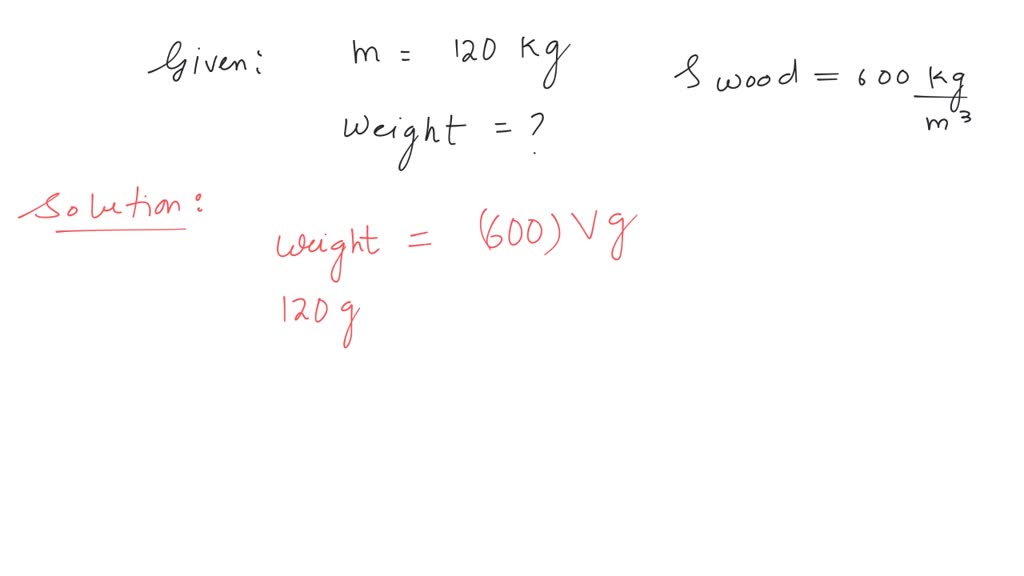 Given: m = 120 kg
S wood = 600 kg/m³
Weight = ?
Solution:
weight = (600) V g
120 g